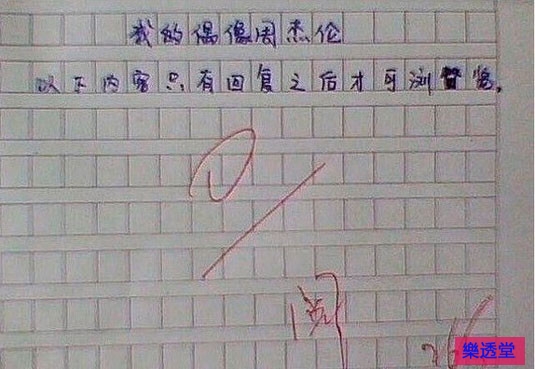 我的偶像周杰伦
以下内容只有回复之后才可浏览。
0
阅
樂透堂